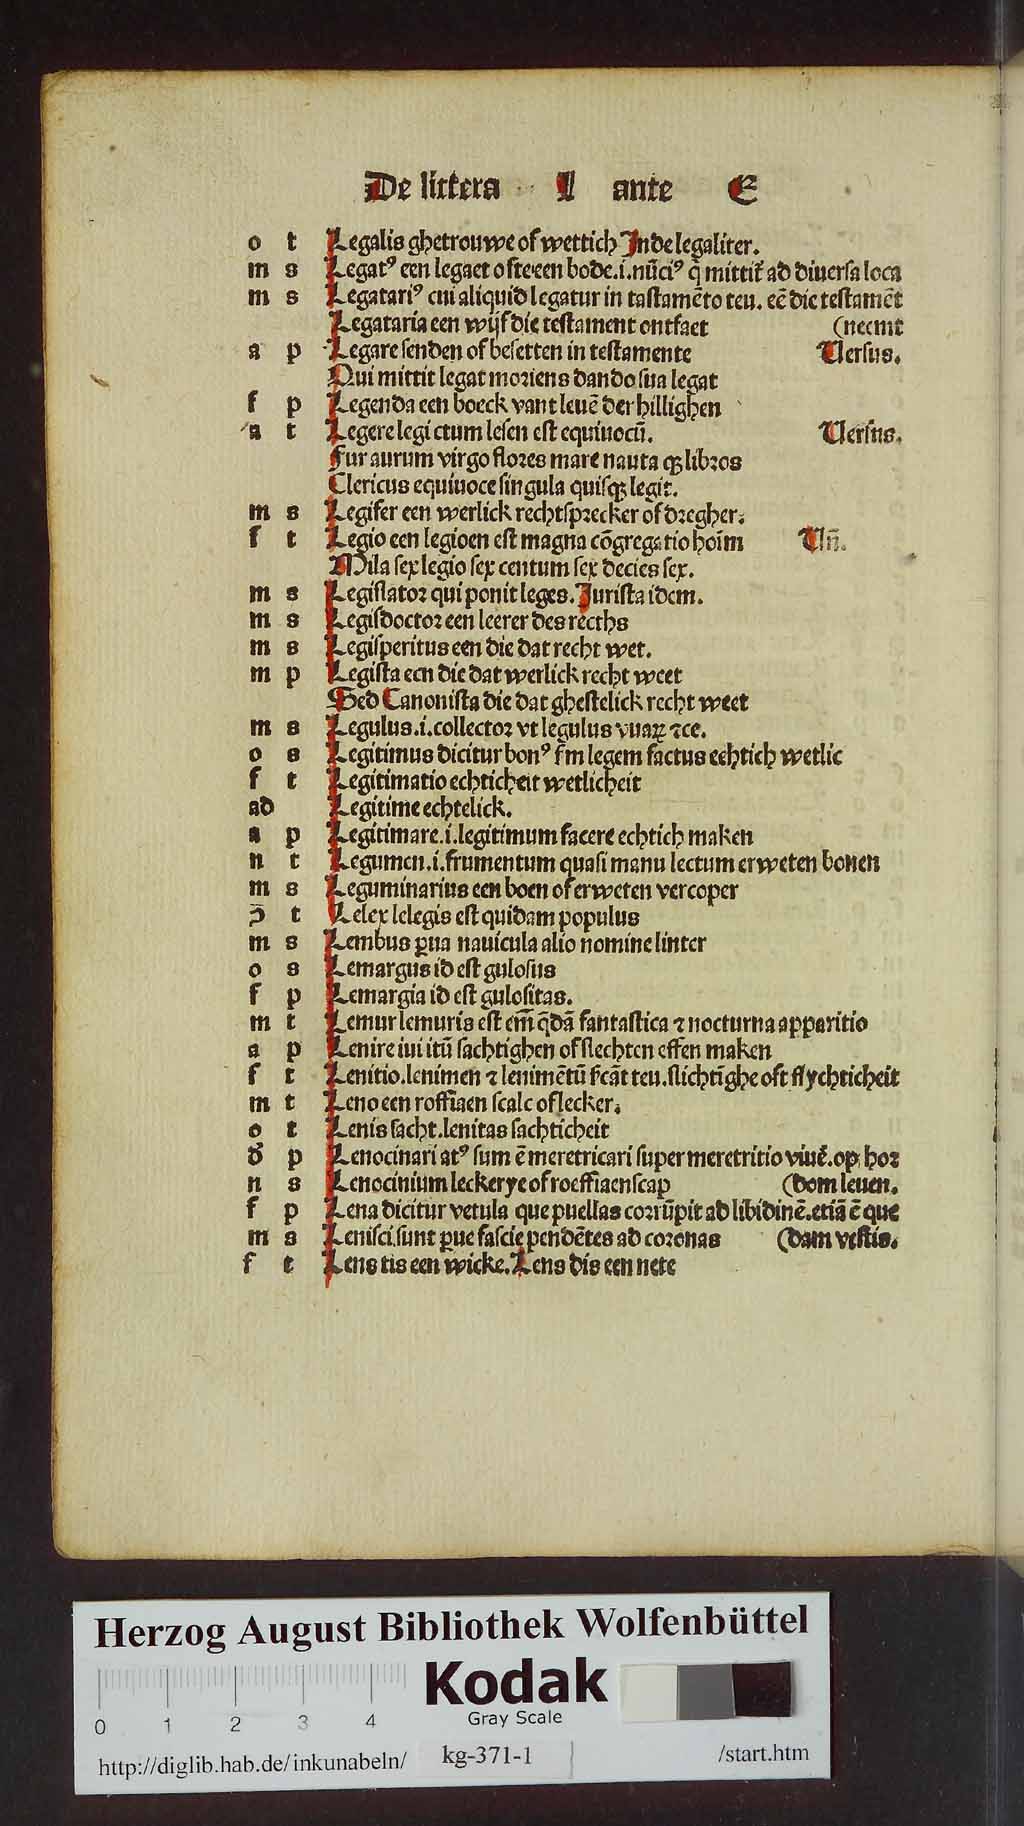 De littera L ante E
o t Legalis ghetrouwe of wettich Inde legaliter.
m s Legatꝰ een legaet ofte een bode.i.nūciꝰ q̄ mittit᷑ ad diuersa loca
m s Legatariꝰ cui aliquid legatur in tastamēto teu. eē die testamēt
Legataria een wijf die testament ontfaet (neemt
a p Legare senden of besetten in testamente Versus.
Qui mittit legat moriens dando sua legat
f p Legenda een boeck vant leuē der hillighen
a t Legere legi ctum lesen est equiuocū. Versus.
Fur aurum virgo flores mare nauta qꝫ libros
Clericus equiuoce singula quisqꝫ legit.
m s Legifer een werlick rechtsprecker of dregher.
f t Legio een legioen est magna cōgregatio hoīm Vn̄.
Mila sex legio sex centum sex decies sex.
m s Legislator qui ponit leges. Jurista idem.
m s Legisdoctor een leerer des recths
m s Legisperitus een die dat recht wet.
m p Legista een die dat werlick recht weet
Sed Canonista die dat ghestelick recht weet
m s Legulus.i.collector vt legulus vuaꝝ ⁊ce.
o s Legitimus dicitur bonꝰ fm legem factus echtich wetlic
f t Legitimatio echticheit wetlicheit
ad Legitime echtelick.
a p Legitimare.i.legitimum facere echtich maken
n t Legumen.i.frumentum quasi manu lectum erweten bonen
m s Leguminarius een boen of erweten vercoper
ↄ̄ t Lelex lelegis est quidam populus
m s Lembus ꝑua nauicula alio nomine linter
o s Lemargus id est gulosus
f p Lemargia id est gulositas.
m t Lemur lemuris est em̄ q̄dā fantastica ⁊ nocturna apparitio
a p Lenire iui itū sachtighen of slechten effen maken
f t Lenitio.lenimen ⁊ lenimētū ſ̄cāt teu.slichtīghe oft flychticheit
m t Leno een roffiaen scalc of lecker.
o t Lenis sacht.lenitas sachticheit
d̄ p Lenocinari atꝰ sum ē meretricari super meretritio viuē.op hor
n s Lenocinium leckerye of roeffiaenscap (dom leuen.
f p Lena dicitur vetula que puellas corrūpit ad libidinē.etiā ē que
m s Lenisci sunt ꝑue fascie pendētes ad coronas (dam vestis.
f t Lens tis een wicke. Lens dis een nete
Herzog August Bibliothek Wolfenbüttel
Kodak
Gray Scale
0 1 2 3 4
http://diglib.hab.de/inkunabeln/ kg-371-1 /start.htm